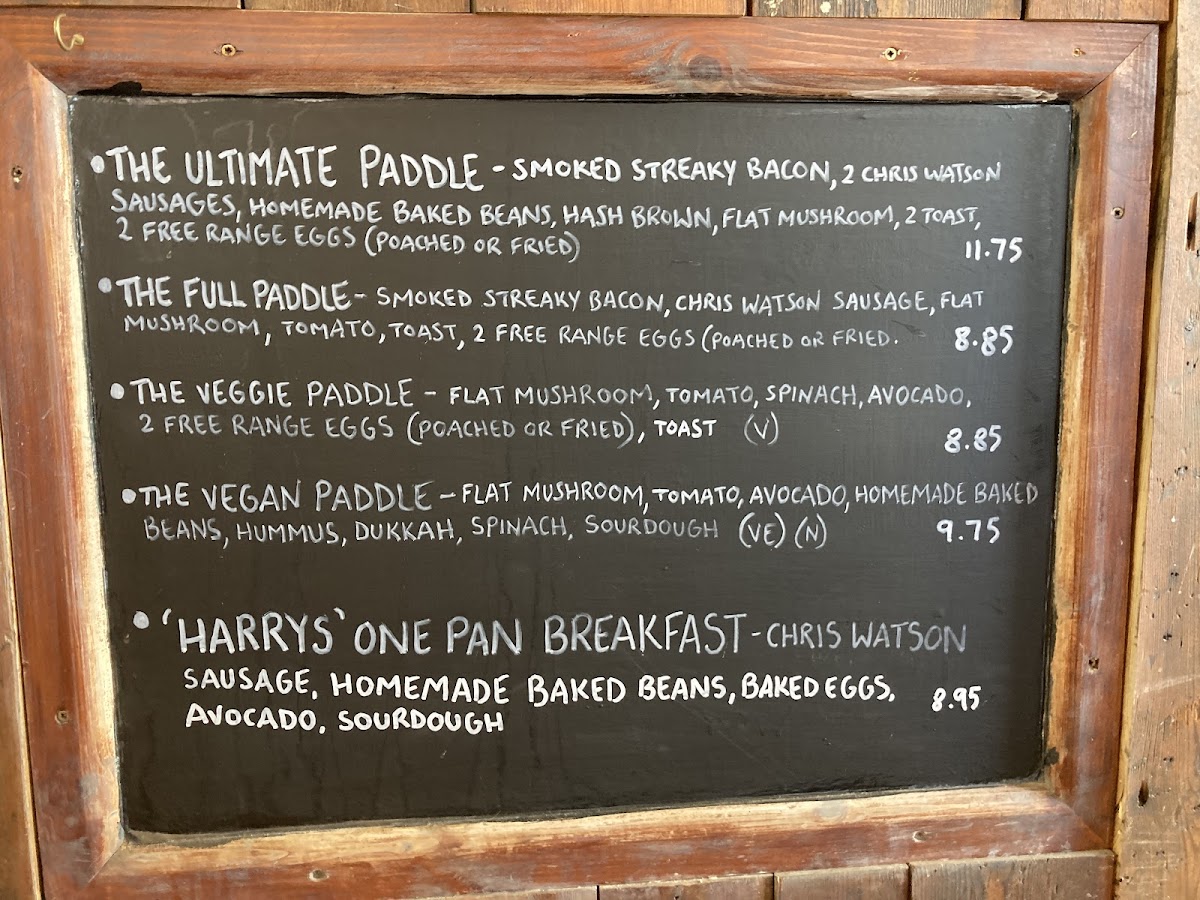 • THE ULTIMATE PADDLE - SMOKED STREAKY BACON, 2 CHRIS WATSON
SAUSAGES, HOMEMADE BAKED BEANS, HASH BROWN, FLAT MUSHROOM, 2 TOAST,
2 FREE RANGE EGGS (POACHED OR FRIED) 11.75
• THE FULL PADDLE - SMOKED STREAKY BACON, CHRIS WATSON SAUSAGE, FLAT
MUSHROOM, TOMATO, TOAST, 2 FREE RANGE EGGS (POACHED OR FRIED. 8.85
• THE VEGGIE PADDLE - FLAT MUSHROOM, TOMATO, SPINACH, AVOCADO,
2 FREE RANGE EGGS (POACHED OR FRIED), TOAST (V) 8.85
• THE VEGAN PADDLE - FLAT MUSHROOM, TOMATO, AVOCADO, HOMEMADE BAKED
BEANS, HUMMUS, DUKKAH, SPINACH, SOURDOUGH (VE) (N) 9.75
• 'HARRYS' ONE PAN BREAKFAST - CHRIS WATSON
SAUSAGE, HOMEMADE BAKED BEANS, BAKED EGGS, 8.95
AVOCADO, SOURDOUGH